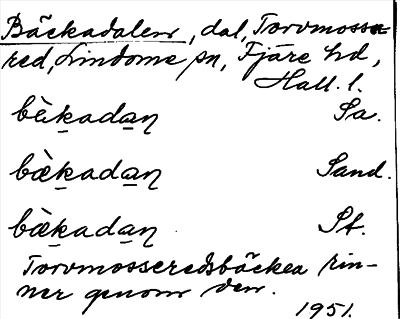 Bäckadalen, dal, Torvmossa-
red, Lindome sn, Fjäre hd,
Hall. l.
bèkadaṉ Sa.
bæ̀kadaṉ Sand.
bæ̀kadaṉ St.
Torvmosseredsbäcken rin-
ner genom den.
1951.